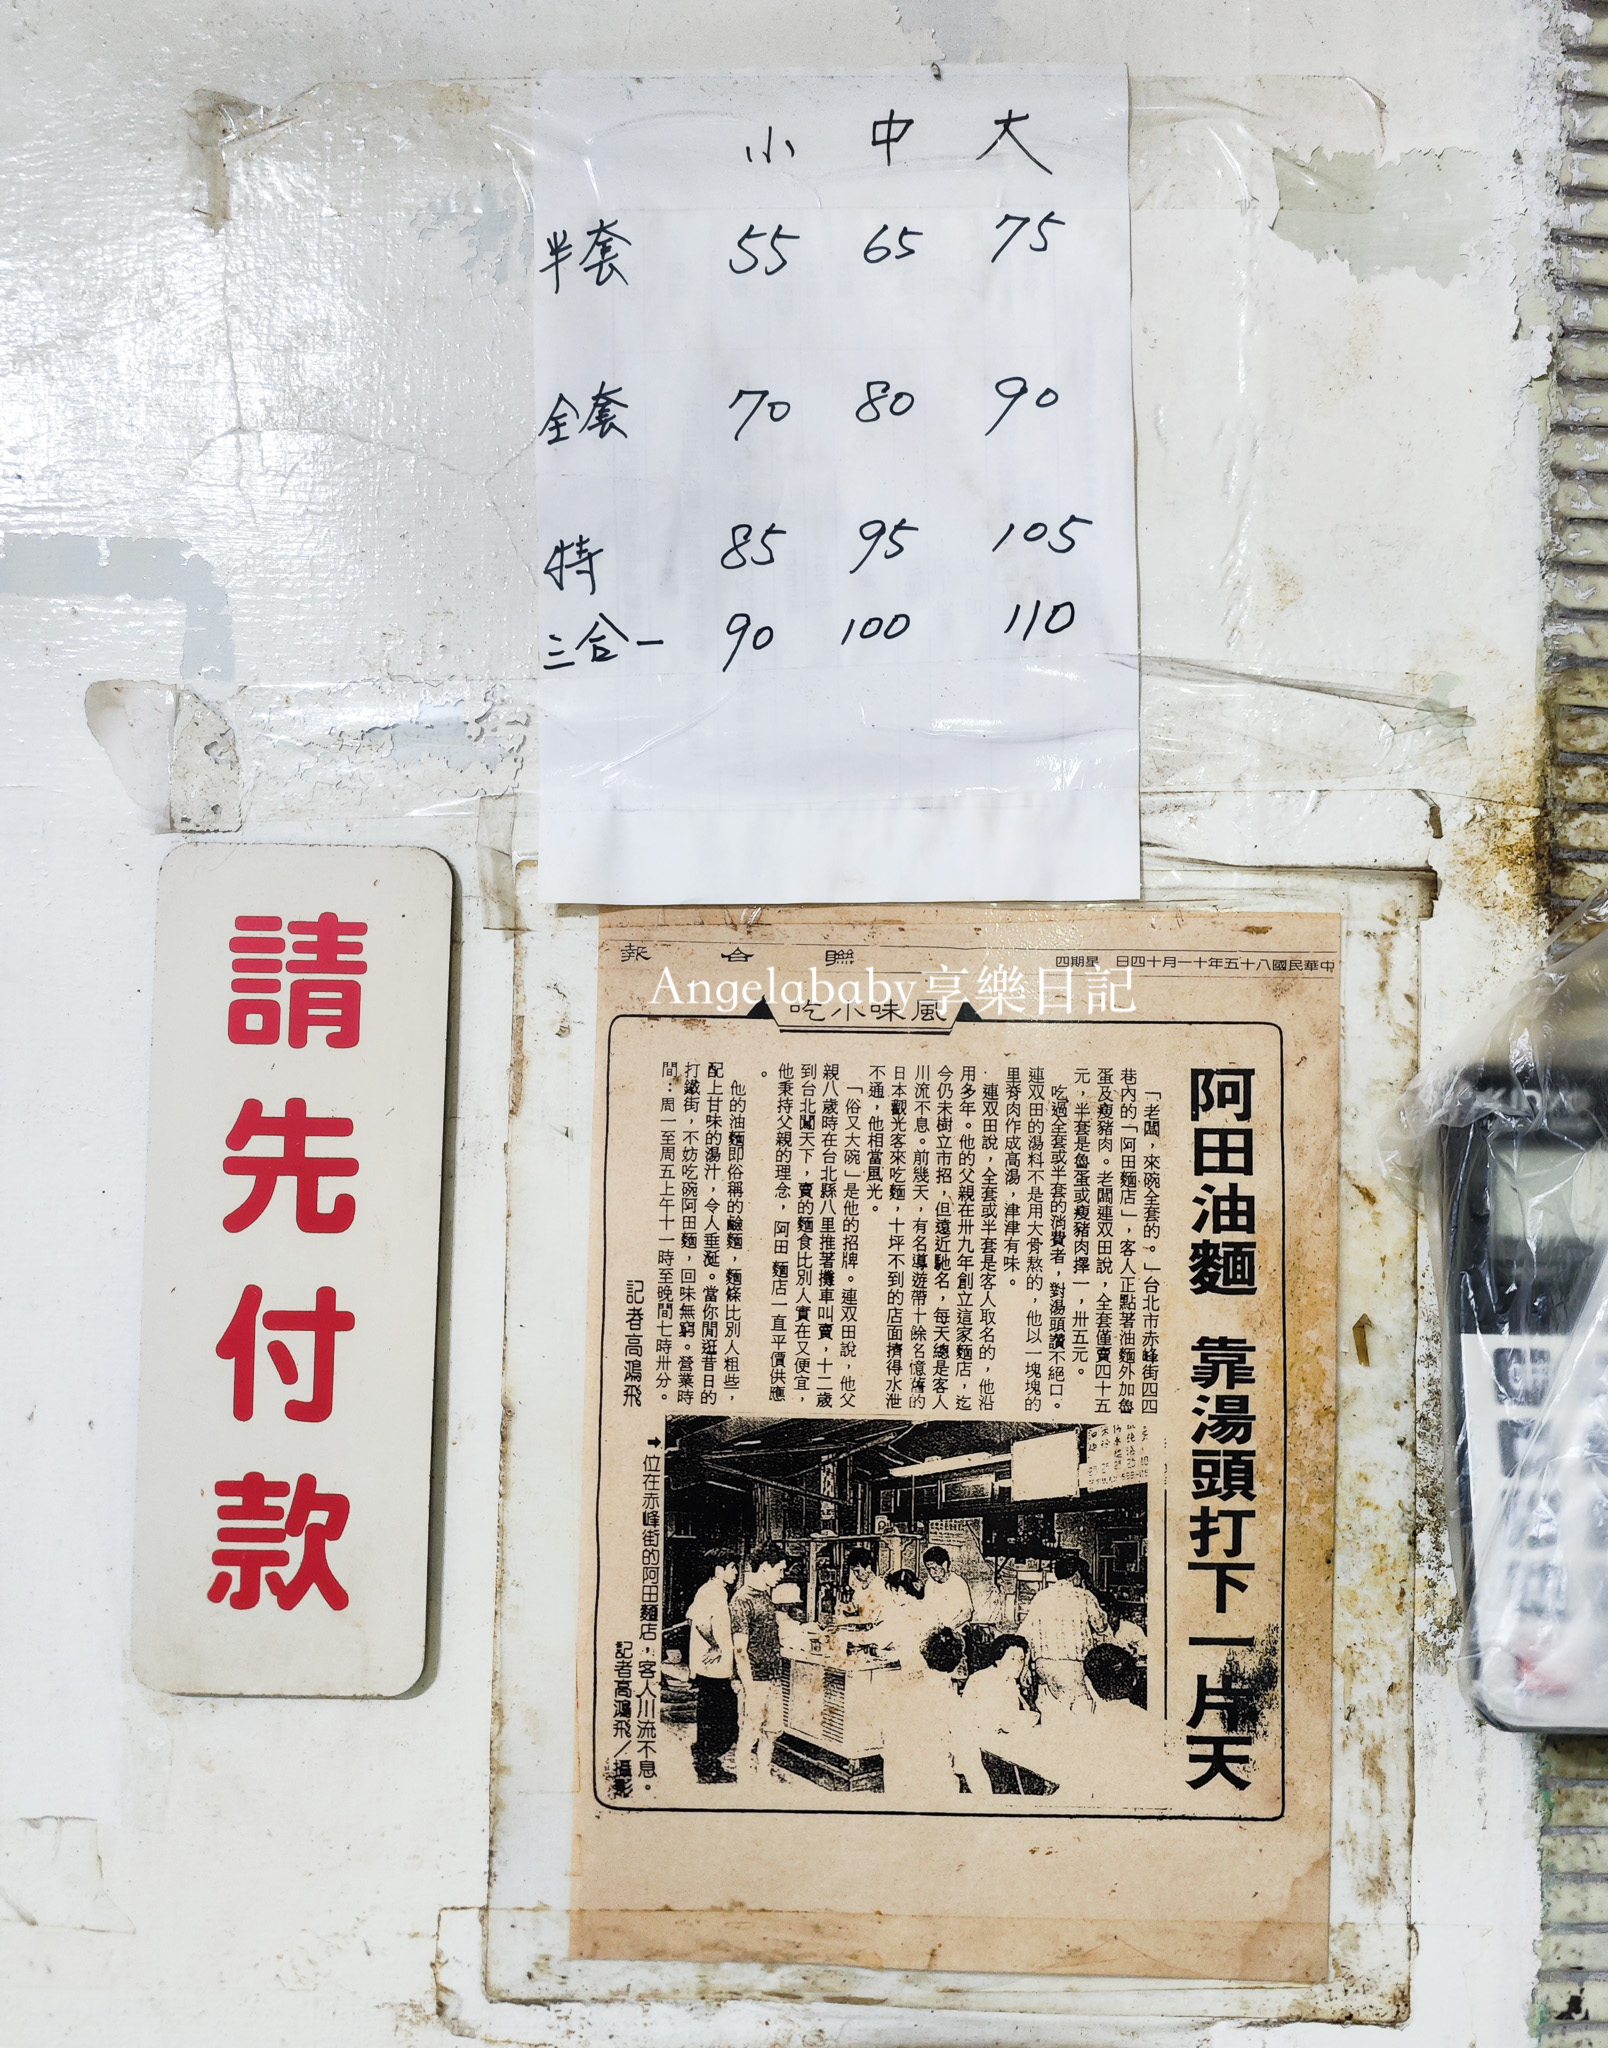 小 中 大
半套 55 65 75
全套 70 80 90
特 85 95 105
三合一 90 100 110
請先付款
報合聯
中華民國八十五年十一月十四日 星期四
Angelababy享樂日記
風味小吃
阿田油麵 靠湯頭打下一片天
「老闆,來碗全套的。」台北市赤峰街四四
巷內的「阿田麵店」,客人正點著油麵外加魯
蛋及瘦豬肉。老闆連双田說,全套僅賣四十五
元,半套是魯蛋或瘦豬肉擇一,卅五元。
吃過全套或半套的消費者,對湯頭讚不絕口。
連双田的湯料不是用大骨熬的,他以一塊塊的
里脊肉作成高湯,津津有味。
連双田說,全套或半套是客人取名的,他沿
用多年。他的父親在卅九年創立這家麵店,迄
今仍未樹立市招,但遠近馳名,每天總是客人
川流不息。前幾天,有名導遊帶十餘名憶舊的
日本觀光客來吃麵,十坪不到的店面擠得水泄
不通,他相當風光。
「俗又大碗」是他的招牌。連双田說,他父
親八歲時在台北縣八里推著攤車叫賣,十二歲
到台北闖天下,賣的麵食比別人實在又便宜,
他秉持父親的理念,阿田麵店一直平價供應
。
他的油麵即俗稱的鹼麵,麵條比別人粗些,
配上甘味的湯汁,令人垂涎。當你閒逛昔日的
打鐵街,不妨吃碗阿田麵,回味無窮。營業時
間:周一至周五上午十一時至晚間七時卅分。
記者高鴻飛
➡位在赤峰街的阿田麵店,客人川流不息。
記者高鴻飛/攝影